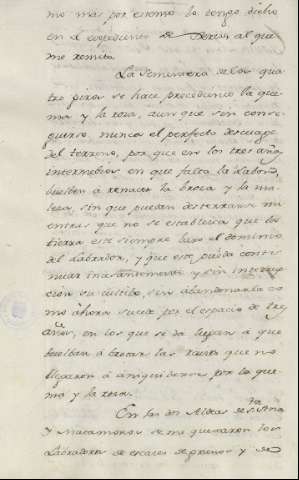 mo mas por extenso lo tengo dicho
en el expediente de Teresa al que
me remito.
La sementera de los qua
tro pisos se hace precediendo la que
ma y la rosa, aunque sin conse-
guirse nunca el perfecto descuage
del terreno, por que en los tres años
intermedios en que falta la labor,
buelben á renacer la broca y la ma
leza, sin que puedan desterrarse mi
entras que no se establezca que la
tierra esté siempre bajo el dominio
del Labrador, y que este pueda conti-
nuar incesantemente y sin interrup
cion su cultibo, sin abandonarla co
mo ahora sucede por el espacio de tres
años, en los que se da lugar á que
buelban á brotar las raices que no
llegaron á aniquilarse por la que
ma y la rosa.
En las dos Aldeas de Sta. Ana
y Matamoros se me quejaron los
Labradores de escasez de granos y de